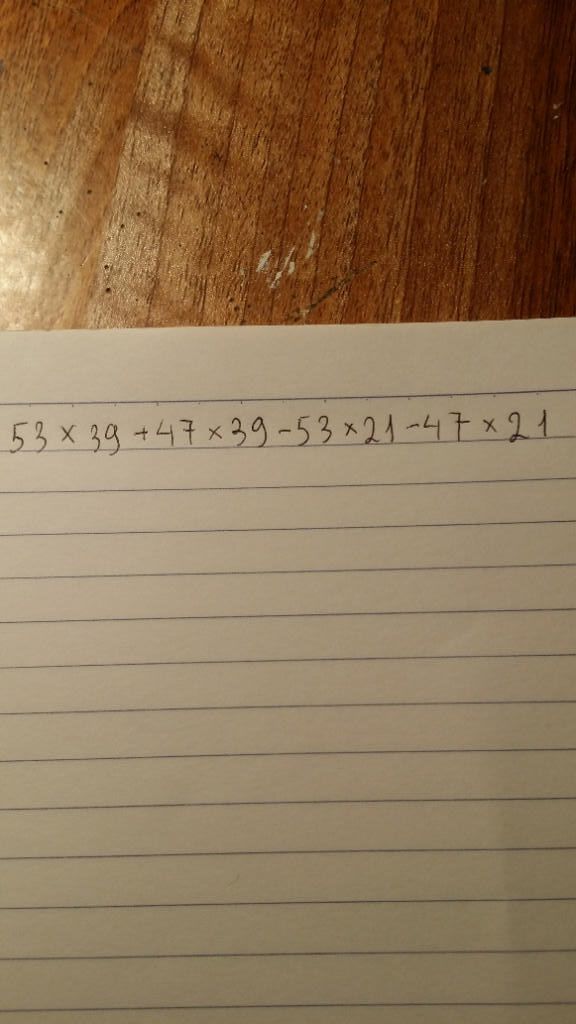 53 × 39 + 47 × 39 - 53 × 21 - 47 × 21